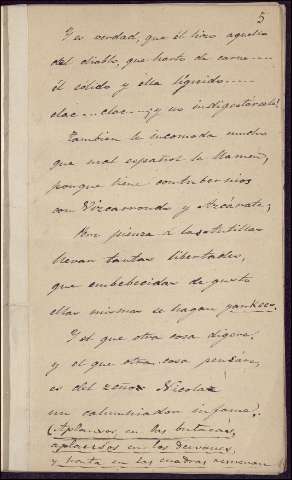 5
Y es verdad, que él hizo aquello
del diablo, que harto de carne....
él sólido y ella líquida.....
clac...clac...¡y us indigestársele!
Tambien le incomoda mucho
que mal español le llamen,
porque tiene contubernios
con Vizcarrondo y Azcárate;
Que piensa á las Antillas
llevar tantas libertades,
que embebecidas de gusto
ellas mismas se hagan yankees.
Y el que otra cosa digere,
y el que otra cosa pensáre,
es del señor Nicolas
un calumniador infame.
(Aplausos en las butacas,
aplausos en los divanes,
y hasta en las cuadras resuenan